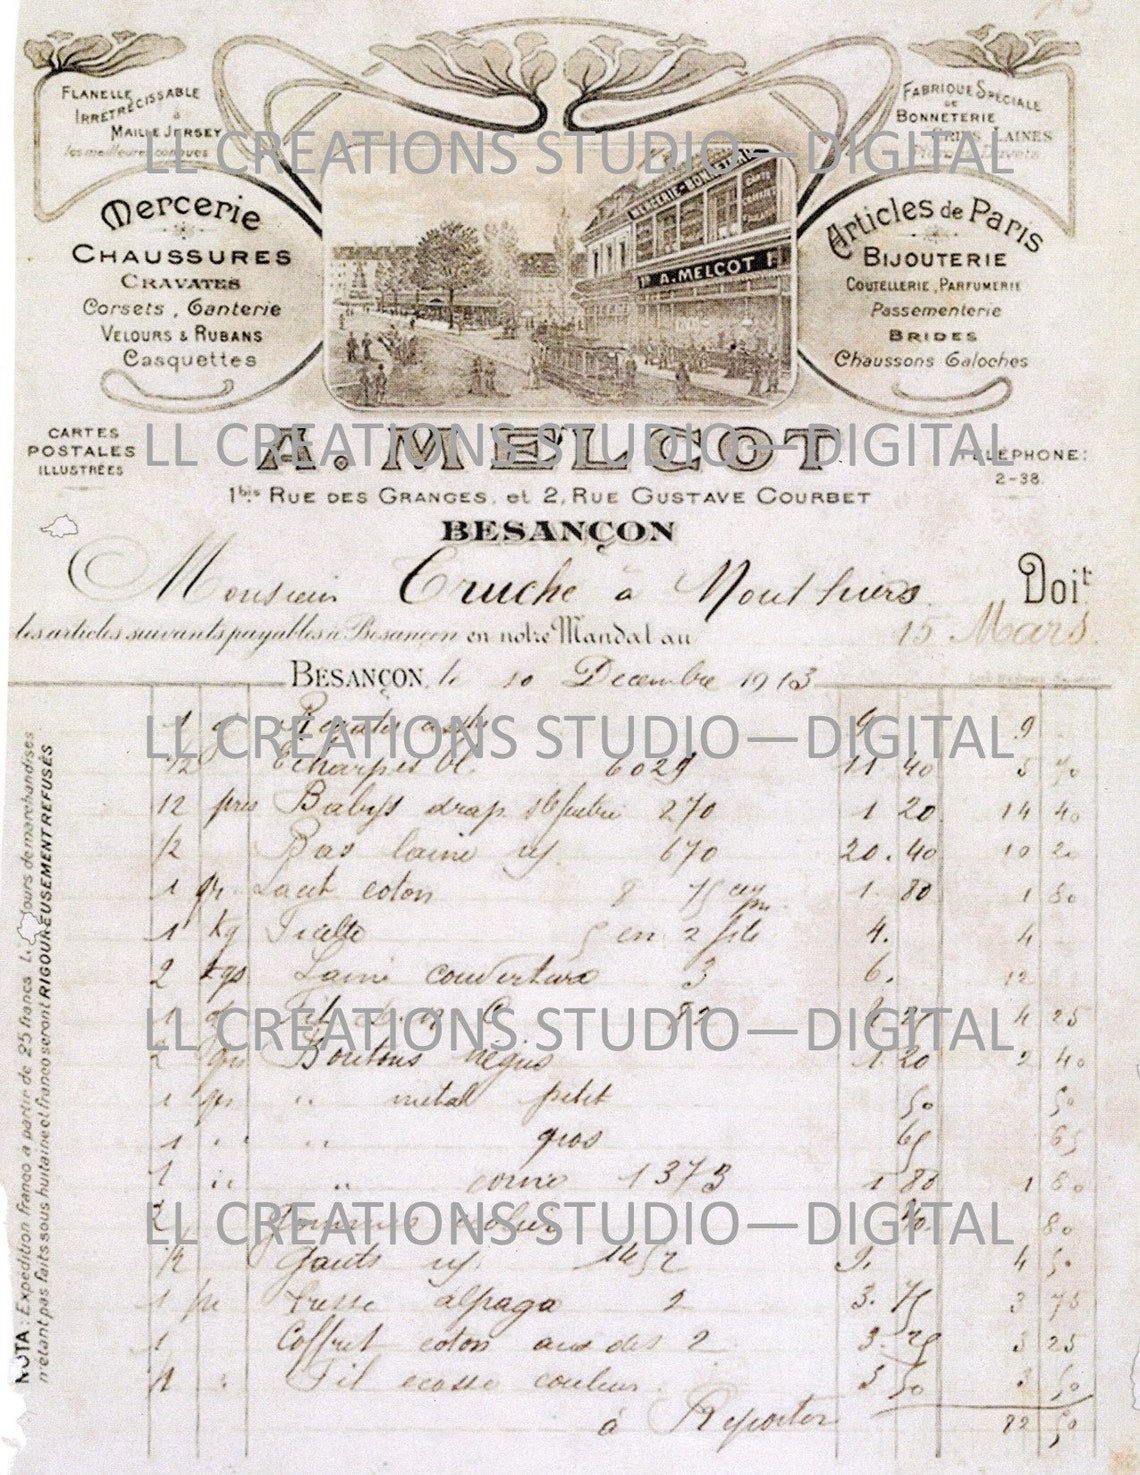 FLANELLE
IRRETRÉCISSABLE
à
MAILLE JERSEY
les meilleures connues
FABRIQUE SPÉCIALE
DE
BONNETERIE
LAINES
LL CREATIONS STUDIO—DIGITAL
Mercerie
CHAUSSURES
CRAVATES
Corsets, Ganterie
VELOURS & RUBANS
Casquettes
MERCERIE-BONNETERIE
A. MELCOT
Articles de Paris
BIJOUTERIE
COUTELLERIE, PARFUMERIE
Passementerie
BRIDES
Chaussons Galoches
CARTES
POSTALES
ILLUSTRÉES
A. MELCOT
LL CREATIONS STUDIO—DIGITAL
TÉLÉPHONE:
2-38.
1bis RUE DES GRANGES, et 2, RUE GUSTAVE COURBET
BESANÇON
Monsieur Cruche à Doit
les articles suivants payables à Besançon en notre Mandat au 15 Mars.
BESANÇON, le 10 Decembre 1913
1 9. 9
LL CREATIONS STUDIO—DIGITAL
1/2 Echarpes bl. 6029 11 40 5 70
12 Babys drap 270 1 20 14 40
1/2 Bas laine 670 20. 40 10 20
1 gr. coton 8 75 1. 80 1 80
1 kg Ficelle 5 en 2 fils 4. 4
2 kgs Laine couverture 3 6. 12
1 Fil C 82 4 25 4 25
LL CREATIONS STUDIO—DIGITAL
2 Boutons nègus 1. 20 2 40
1 " metal petit 50 50
1 " " gros 65 65
1 " " corne 1373 1 80 1 80
2 40. 80
LL CREATIONS STUDIO—DIGITAL
1/2 gants 1452 9. 4 50
1 Tresse alpaga 2 3. 75 3 75
1 Coffret coton 2 3. 25 3 25
Fil ecosse couleur 3 50 3 50
à Reporter 82 50
NOTA : Expédition franco à partir de 25 francs
n'étant pas faits sous huitaine et franco seront RIGOUREUSEMENT REFUSÉS